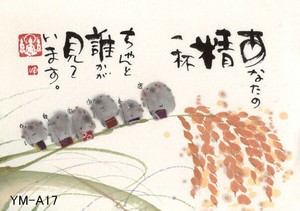 あなたの
精
一杯
ちゃんと
誰かが
見て
います。
YM-A17